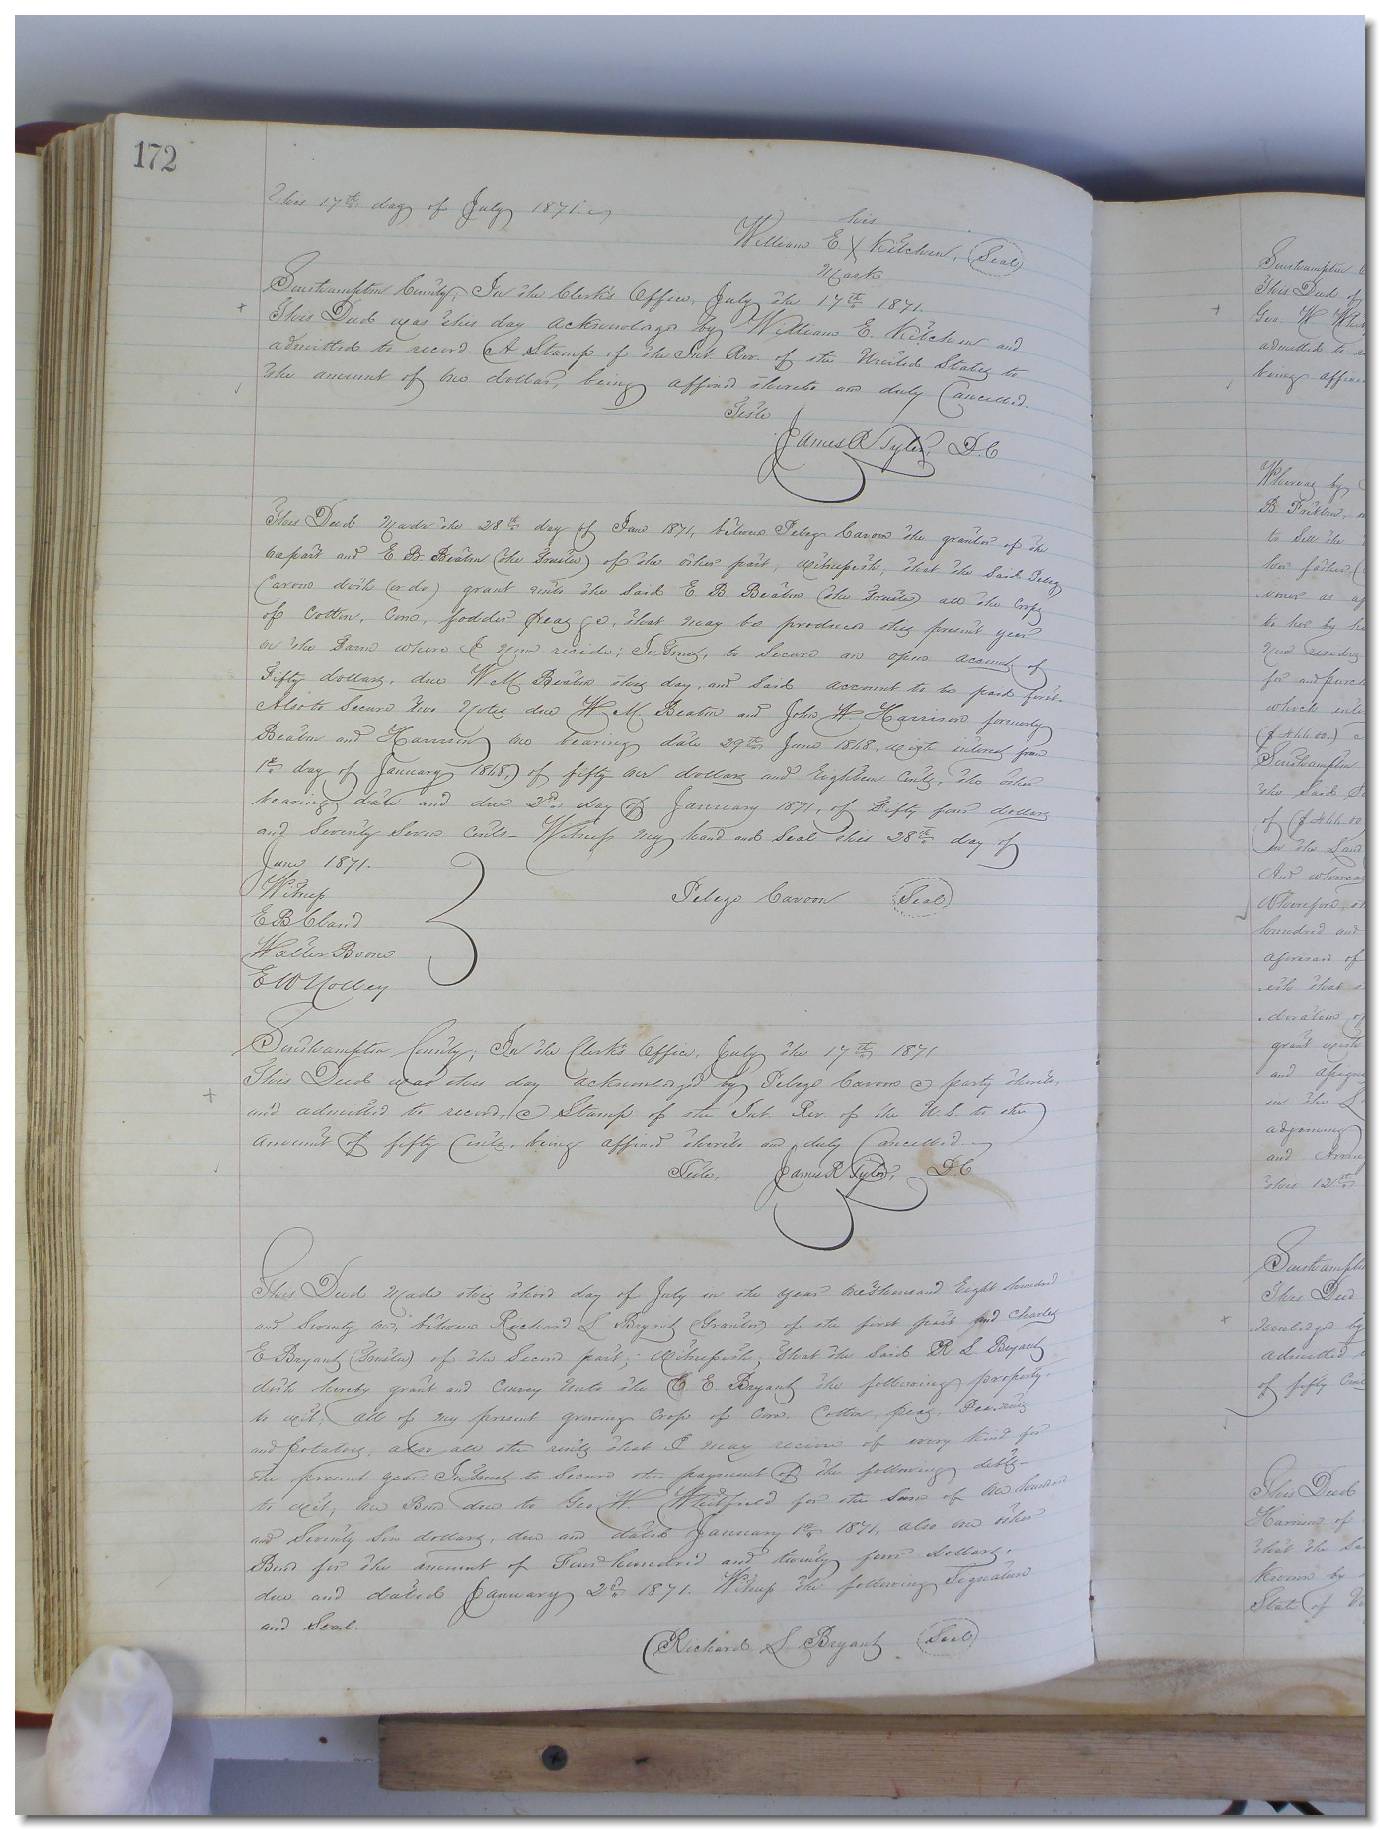 172
This 17th day of July 1871.
his
William E X Kitchen, (Seal)
Mark
Southampton County; In the Clerk's Office, July the 17th 1871.
This Deed was this day acknowledged by William E. Kitchen and
admitted to record A Stamp of the Int. Rev. of the United States to
the amount of One dollar, being affixed thereto and duly Cancelled.
Teste
James R Tyler, D.C
This Deed Made the 28th day of June 1871, between Pelege Cavoon the grantor of the
one part and E B Beaton (the Trustee) of the other part, Witnesseth, that the Said Pelege
Cavoon doth (or do) grant unto the Said E B Beaton (the Trustee) all the Crops
of Cotton, Corn, fodder peas &c, that may be produced this present year
on the Farm where I now reside; In Trust, to Secure an open account of
Fifty dollars, due W M Beaton this day, and Said account to be paid first.
Also to Secure two Notes due W M Beaton and John W Harrison formerly
Beaton and Harrison One bearing date 29th June 1868, with interest from
1st day of January 1868,) of fifty one dollars and Eighteen Cents, the other
bearing date and due 2nd day of January 1871, of Fifty four dollars
and Seventy Seven cents - Witness my hand and Seal this 28th day of
June 1871.
Witness
Pelege Cavoon (Seal)
E B Cland
Walter Boone
E W Nolley
Southampton County; In the Clerk's Office, July the 17th 1871
This Deed was this day acknowledged by Pelege Cavoon a party thereto,
and admitted to record, a Stamp of the Int. Rev. of the U.S. to the
amount of fifty Cents, being affixed thereto and duly Cancelled.
Teste, James R Tyler, D.C
This Deed Made this third day of July in the year One thousand Eight hundred
and Seventy one, between Richard L Bryant (Grantor) of the first part and Charles
E Bryant (Trustee) of the Second part; Witnesseth, that the Said R L Bryant
doth hereby grant and Convey Unto the C E. Bryant the following property.
to wit; all of my present growing Crop of Corn, Cotton, peas,
and potatoes, also all the rents that I may receive of every kind for
the present year. In trust to Secure the payment of the following debts
to wit, One Bond due to Geo W Whitfield for the Sum of One hundred
and Seventy Six dollars, due and dated January 1st 1871, also one other
Bond for the amount of Four hundred and twenty four dollars,
due and dated January 2nd 1871. Witness the following Signature
and Seal.
Richard L. Bryant (Seal)
Southampton
This Deed of
Geo. W
admitted to
being affixed
Whereas by
to Sell the
her father
to her by
now residing
which
Southampton
the Said
of
In the Land
And whereas
Wherefore,
hundred and
aforesaid of
grant unto
in the
adjoining
and
this 12th
Southampton
This Deed
admitted
of fifty Cents
This Deed
Harrison of
that the Sa
known by
State of